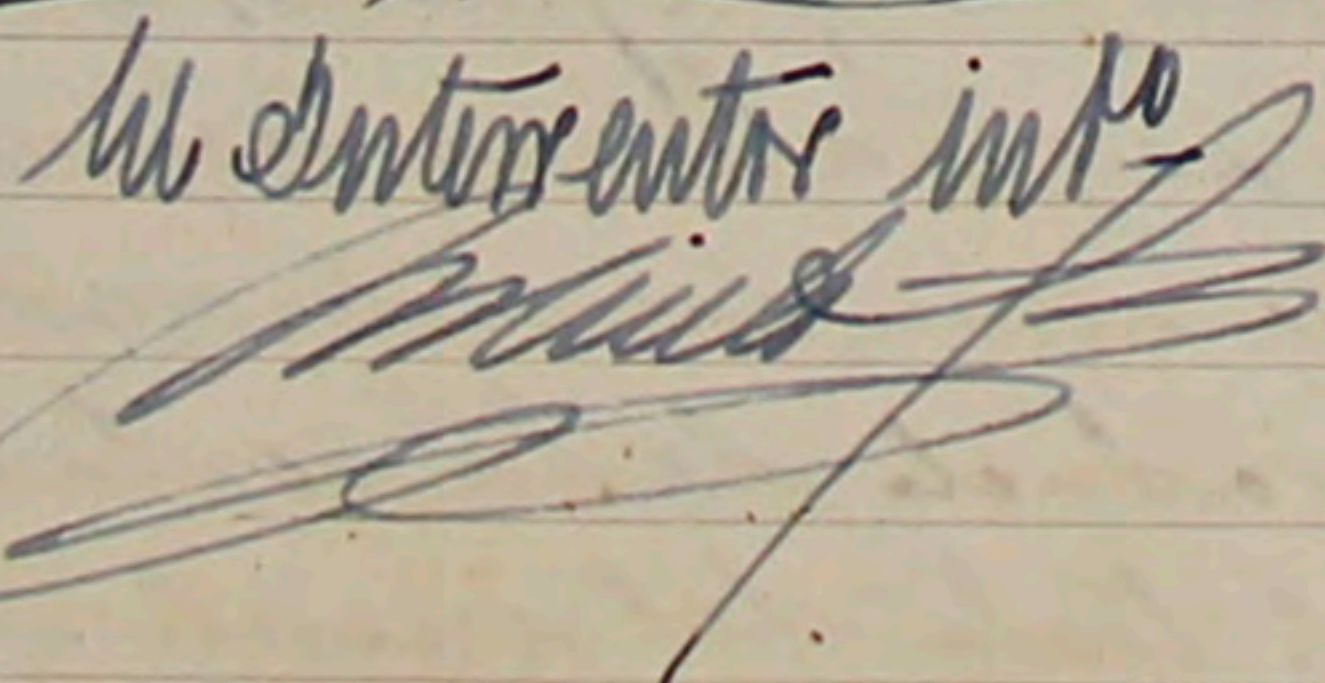 El Interventor intº